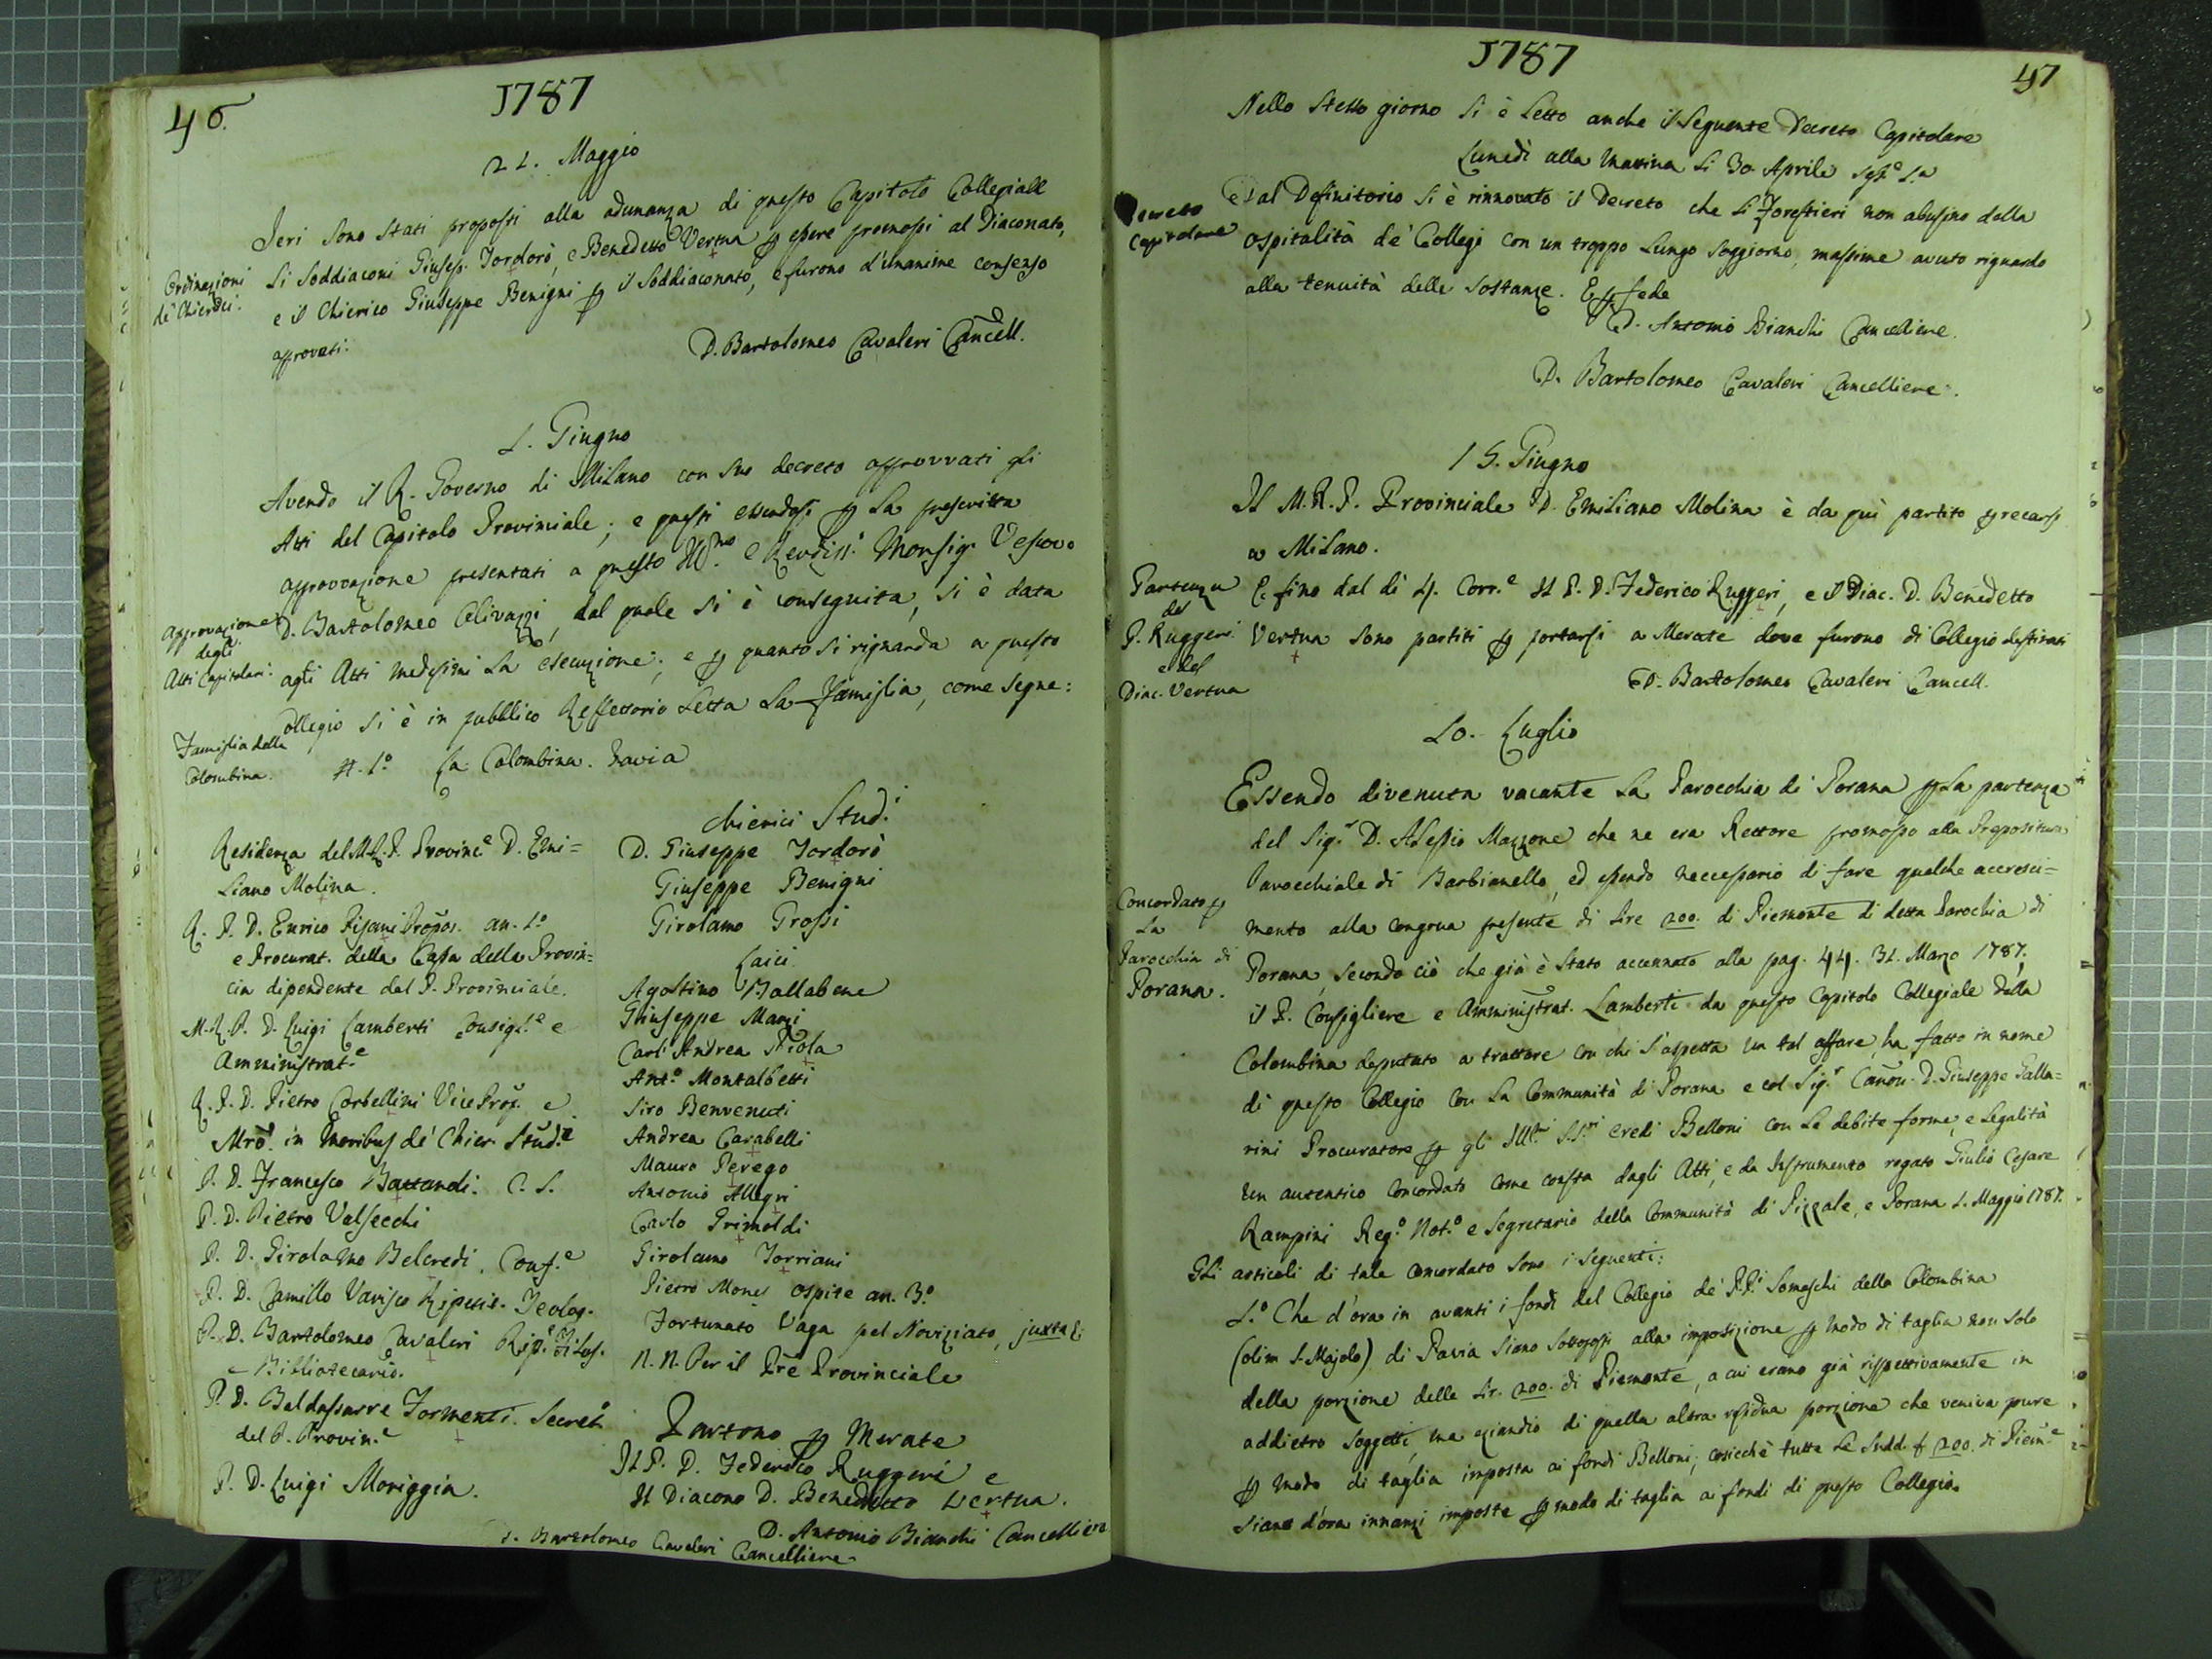 46.
1787
21. Maggio
Ordinazioni
de' Chierici.
Jeri sono stati proposti alla adunanza di questo Capitolo Collegiale
li Soddiaconi Giusep. Tordorò, e Benedetto Vertua p essere promossi al Diaconato,
e il Chierico Giuseppe Benigni p il Soddiaconato, e furono d'unanime consenso
approvati.
D. Bartolomeo Cavaleri Cancell.
1. Giugno
Avendo il R. Governo di Milano con suo decreto approvvati gli
Atti del Capitolo Provinciale; e questi essendosi p la prescritta
approvazione presentati a questo Ill.mo e Revdiss.o Monsig. Vescovo
Approvazione
degli
Atti Capitolari.
D. Bartolomeo Olivazzi, dal quale si è conseguita, si è data
agli Atti medesimi la esecuzione; e p quanto si riguarda a questo
Collegio si è in pubblico Reffettorio letta la famiglia, come segue:
Famiglia della
Colombina.
N. 1.o La Colombina. Pavia
Residenza del M.R.P. Provinc.e D. Emi=
liano Molina.
R. P. D. Enrico Pisani Propos. an. 1.o
e Procurat. della Casa della Provin=
cia dipendente dal P. Provinciale.
M.R.P. D. Luigi Lamberti Consigl.e e
Amministrat.e
R. P. D. Pietro Corbellini Vice Prop. e
Mro. in moribus de' Chier. Stud.i
P. D. Francesco Battandi. C. S.
P. D. Pietro Valsecchi
P. D. Girolamo Belcredi. Conf.e
P. D. Camillo Varisco Ripetit. Teolog.
P. D. Bartolomeo Cavaleri Rip. Filos.
e Bibliotecario.
P. D. Baldassarre Formenti. Secret.o
del P. Provin.e
P. D. Luigi Moriggia.
Chierici Stud.i
D. Giuseppe Tordorò
Giuseppe Benigni
Girolamo Grossi
Laici
Agostino Mallabene
Giuseppe Manzi
Carl' Andrea Piola
Ant.o Montalbetti
Siro Benvenuti
Andrea Carabelli
Mauro Perego
Antonio Allegri
Carlo Grimoldi
Girolamo Torriani
Pietro Mones ospite an. 3.o
Fortunato Vaga pel Noviziato, juxta &
N. N. Per il Pre Provinciale
Partono p Merate
Il P. D. Federico Ruggeri e
Il Diacono D. Benedetto Vertua.
D. Antonio Bianchi Cancelliere
D. Bartolomeo Cavaleri Cancelliere
1787
47
Nello stesso giorno si è letto anche il seguente Decreto Capitolare
Lunedì alla mattina li 30 Aprile
Decreto
Capitolare
Dal Definitorio si è rinnovato il Decreto che li Forestieri non abusino della
ospitalità de' Collegi con un troppo lungo soggiorno, massime avuto riguardo
alla tenuità delle sostanze. E p fede
D. Antonio Bianchi Cancelliere.
D. Bartolomeo Cavaleri Cancelliere.
15. Giugno
Il M.R.P. Provinciale D. Emiliano Molina è da quì partito p recarsi
a Milano.
Partenza
del
P. Ruggeri
e del
Diac. Vertua
E fino dal dì 4. Corr.e Il P. D. Federico Ruggeri, e il Diac. D. Benedetto
Vertua sono partiti p portarsi a Merate dove furono di Collegio destinati
D. Bartolomeo Cavaleri Cancell.
10. Luglio
Essendo divenuta vacante la Parocchia di Porana p la partenza
del Sig.r D. Alessio Mazzone che ne era Rettore promosso alla Prepositura
Parocchiale di Barbianello, ed essendo neccessario di fare qualche accresci=
Concordato p
la
Parocchia di
Porana.
mento alla congrua presente di lire 200. di Piemonte di detta Parochia di
Porana, secondo ciò che già è stato accennato alla pag. 44. 31. Marzo 1787.
il P. Consigliere e Amministrat. Lamberti da questo Capitolo Collegiale della
Colombina deputato a trattare con chi s'aspetta un tal affare, ha fatto in nome
di questo Collegio con la Communità di Porana e col Sig.r Canon. D. Giuseppe Galla=
rini Procuratore p gli Ill.mi S.S.ri eredi Belloni con le debite forme, e legalità
un autentico Concordato come consta dagli Atti, e da Instrumento rogato Giulio Cesare
Rampini Reg.o Not.o e Segretario della Communità di Pizzale, e Porana 1. Maggio 1787.
Gli articoli di tale Concordato sono i seguenti:
1.o Che d'ora in avanti i fondi del Collegio de' P.P.i Somaschi della Colombina
(olim S. Majolo) di Pavia siano sottoposti alla imposizione p modo di taglia non solo
della porzione delle lir. 200. di Piemonte, a cui erano già rispettivamente in
addietro soggetti, ma eziandio di quella altra residua porzione che veniva pure
p modo di taglia imposta ai fondi Belloni; cosicchè tutte le sudd. £ 200. di Piem.e
siano d'ora innanzi imposte p modo di taglia ai fondi di questo Collegio.